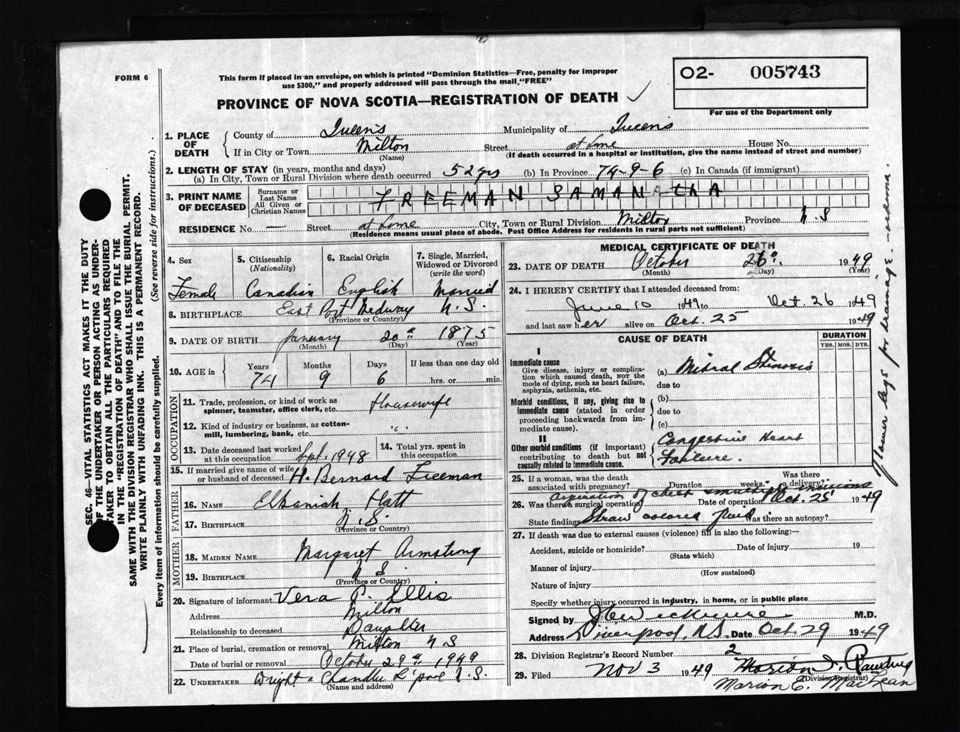 FORM 6
This form if placed in an envelope, on which is printed "Dominion Statistics—Free, penalty for improper
use $300," and properly addressed will pass through the mail, "FREE"
PROVINCE OF NOVA SCOTIA—REGISTRATION OF DEATH ✓
O2- 005743
For use of the Department only
SEC. 46—VITAL STATISTICS ACT MAKES IT THE DUTY
OF THE UNDERTAKER OR PERSON ACTING AS UNDER-
TAKER TO OBTAIN ALL THE PARTICULARS REQUIRED
IN THE "REGISTRATION OF DEATH" AND TO FILE THE
SAME WITH THE DIVISION REGISTRAR WHO SHALL ISSUE THE BURIAL PERMIT.
WRITE PLAINLY WITH UNFADING INK. THIS IS A PERMANENT RECORD.
Every item of information should be carefully supplied. (See reverse side for instructions.)
1. PLACE OF DEATH
County of Queens Municipality of Queens
If in City or Town Milton Street at home House No.
(Name) (If death occurred in a hospital or institution, give the name instead of street and number)
2. LENGTH OF STAY (in years, months and days)
(a) In City, Town or Rural Division where death occurred 52 yrs (b) In Province 74-9-6 (c) In Canada (if immigrant)
3. PRINT NAME OF DECEASED
Surname or Last Name
All Given or Christian Names
FREEMAN SAMANTHA
RESIDENCE No. — Street at home City, Town or Rural Division Milton Province N.S
(Residence means usual place of abode. Post Office Address for residents in rural parts not sufficient)
4. Sex
Female
5. Citizenship (Nationality)
Canadian
6. Racial Origin
English
7. Single, Married, Widowed or Divorced (write the word)
Married
8. BIRTHPLACE East Port Medway N.S.
(Province or Country)
9. DATE OF BIRTH January 20th 1875
(Month) (Day) (Year)
10. AGE in Years 74 Months 9 Days 6
If less than one day old
hrs. or min.
OCCUPATION
11. Trade, profession, or kind of work as
spinner, teamster, office clerk, etc. Housewife
12. Kind of industry or business, as cotton-
mill, lumbering, bank, etc. "
13. Date deceased last worked at this occupation Sept. 1948
14. Total yrs. spent in this occupation
15. If married give name of wife
or husband of deceased H. Bernard Freeman
FATHER
16. NAME Elkaniah Hatt
17. BIRTHPLACE N.S.
(Province or Country)
MOTHER
18. MAIDEN NAME Margaret Armstrong
19. BIRTHPLACE N S
(Province or Country)
20. Signature of informant Vera P. Ellis
Address Milton
Relationship to deceased Daughter
21. Place of burial, cremation or removal Milton N S
Date of burial or removal October 29th 1949
22. UNDERTAKER Wright & Chandler L'pool N.S.
(Name and address)
MEDICAL CERTIFICATE OF DEATH
23. DATE OF DEATH October 26th 1949
(Month) (Day) (Year)
24. I HEREBY CERTIFY that I attended deceased from:
June 10 1949 to Oct. 26 1949
and last saw her alive on Oct. 25 1949
CAUSE OF DEATH
DURATION
YRS. MOS. DYS.
I
Immediate cause
Give disease, injury or complica-
tion which caused death, not the
mode of dying, such as heart failure,
asphyxia, asthenia, etc.
(a) Mitral Stenosis
due to
Morbid conditions, if any, giving rise to
immediate cause (stated in order
proceeding backwards from im-
mediate cause).
(b)
due to
(c)
II
Other morbid conditions (if important)
contributing to death but not
causally related to immediate cause.
Congestive Heart
Failure.
25. If a woman, was the death
associated with pregnancy? Duration weeks. Was there a delivery?
26. Was there a surgical operation? Aspiration of chest Date of operation Oct. 25 1949
State findings Straw colored fluid Was there an autopsy?
27. If death was due to external causes (violence) fill in also the following:—
Accident, suicide or homicide? Date of injury 19
(State which)
Manner of injury
(How sustained)
Nature of injury
Specify whether injury occurred in industry, in home, or in public place
Signed by M.D.
Address Liverpool, N.S. Date Oct. 29 1949
28. Division Registrar's Record Number 2
29. Filed Nov 3 1949
(Division Registrar)
Marion C. MacLean